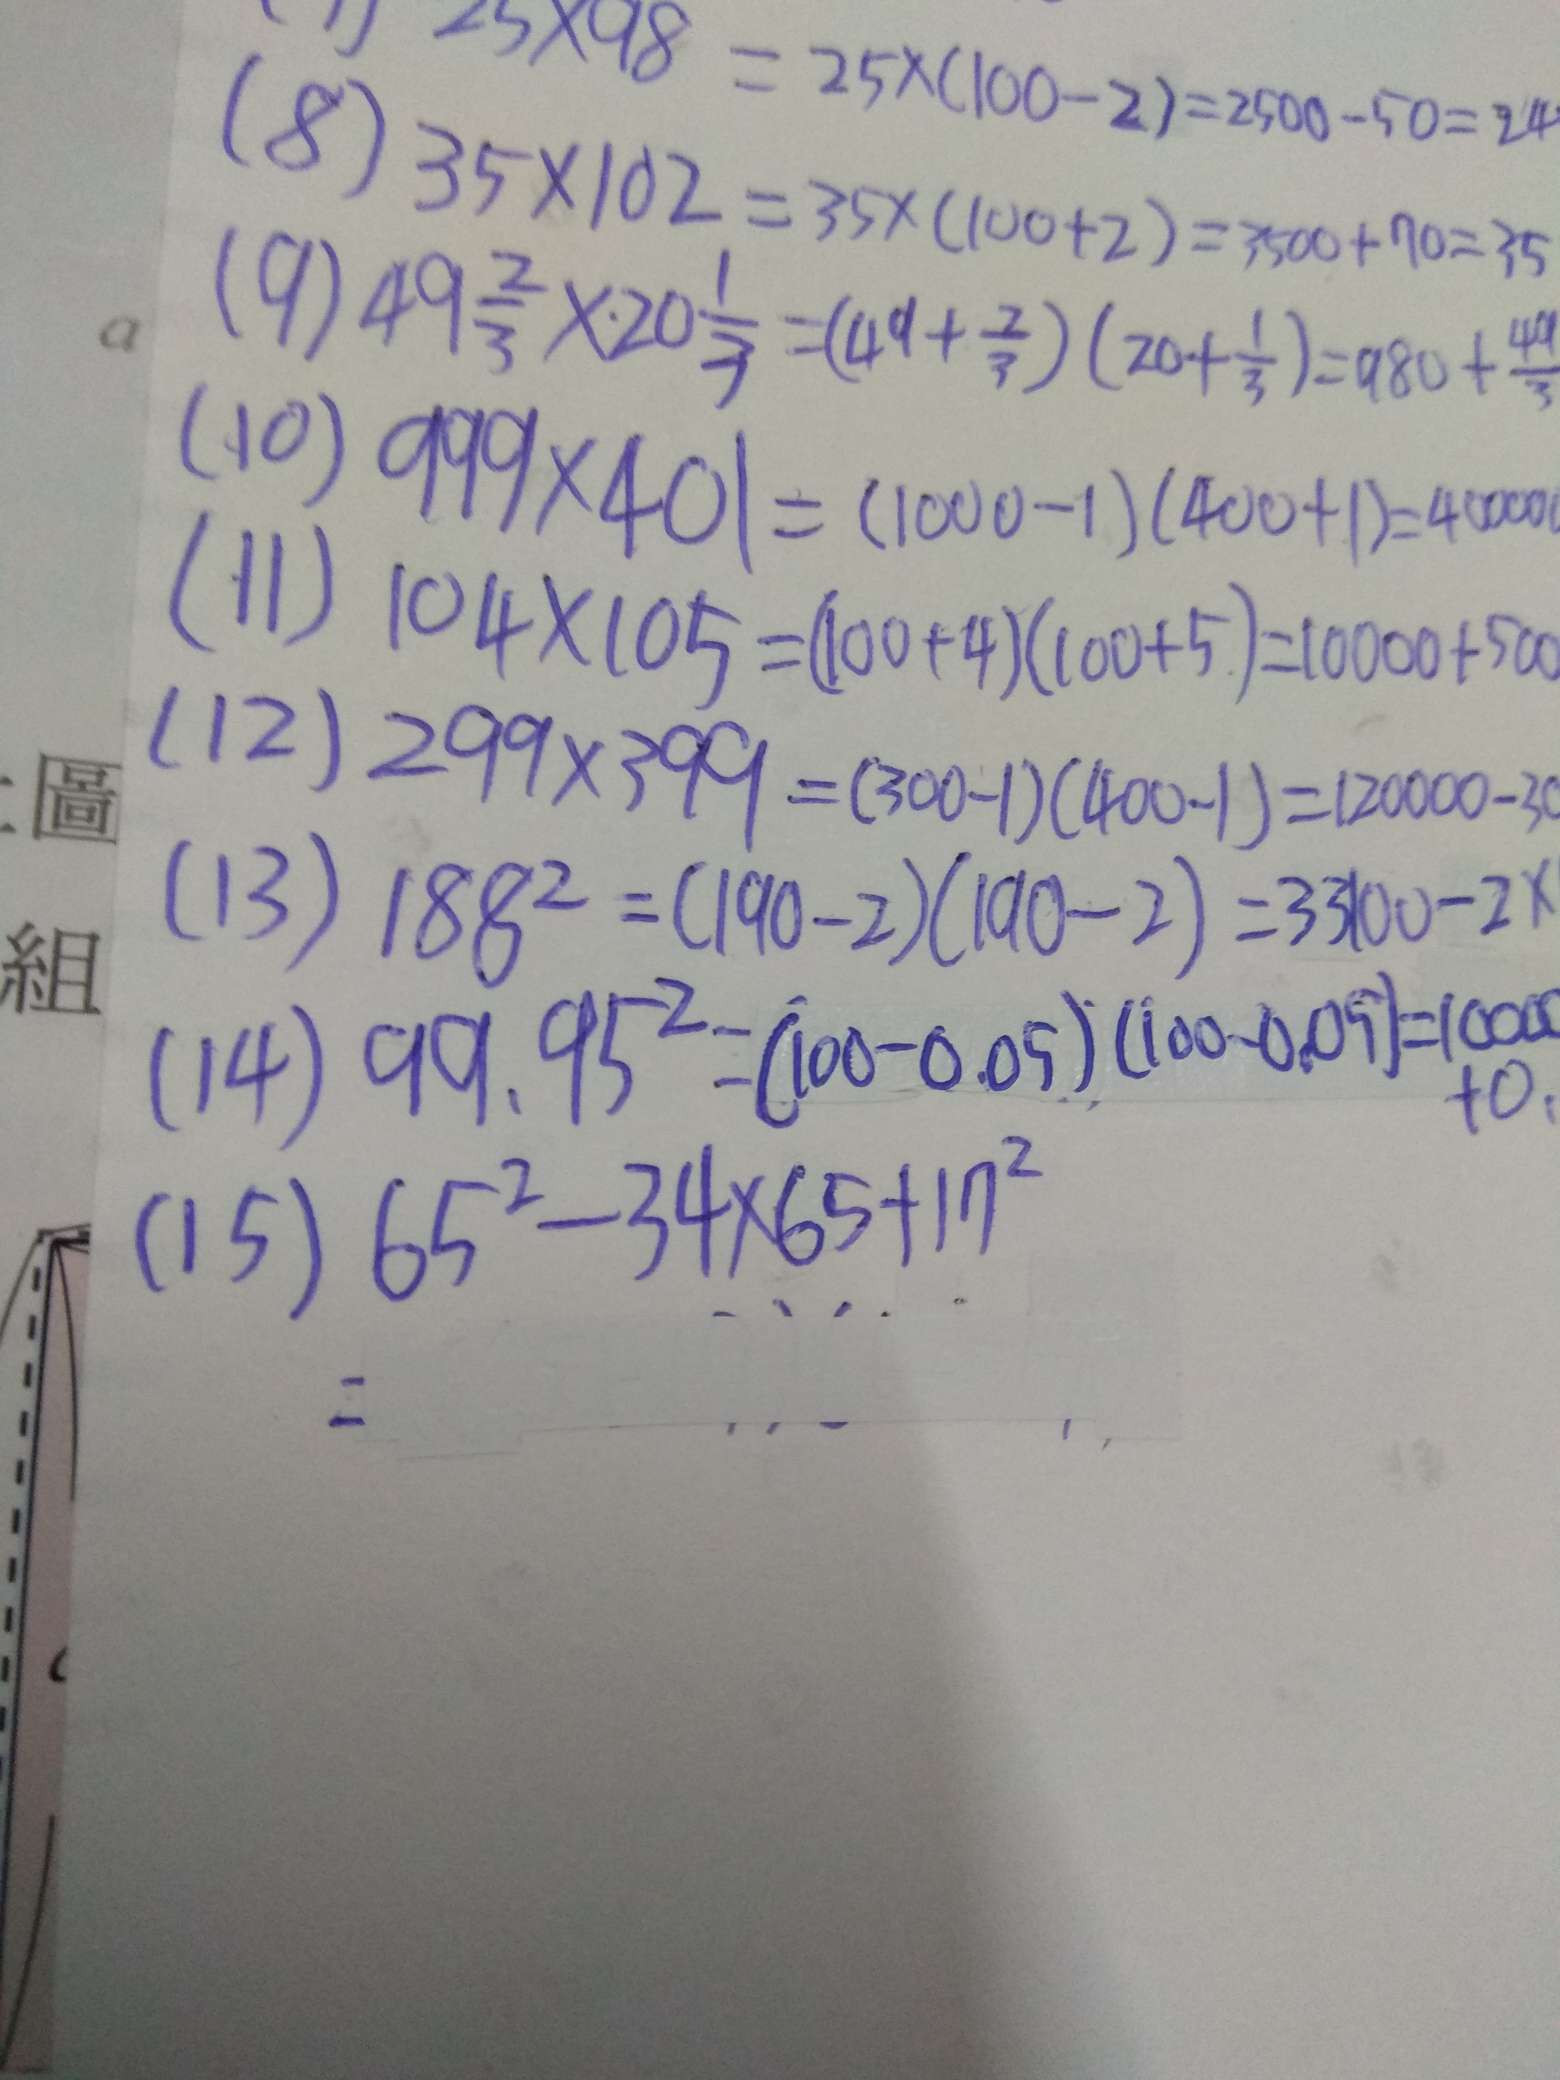 25×98 = 25×(100-2)=2500-50=24
(8) 35×102 = 35×(100+2)=3500+70=35
(9) 49 2/3 × 20 1/3 =(49+2/3)(20+1/3)=980+49/3
a
(10) 999×401 = (1000-1)(400+1)=40000
(11) 104×105 =(100+4)(100+5)=10000+500
(12) 299×399 =(300-1)(400-1)=120000-30
圖
(13) 188² =(190-2)(190-2) =33100-2×
組
(14) 99.95² =(100-0.05)(100-0.05)=1000
+0.
(15) 65²-34×65+17²
=